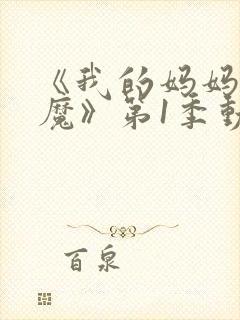 《我的妈妈
魔》第1季
百泉